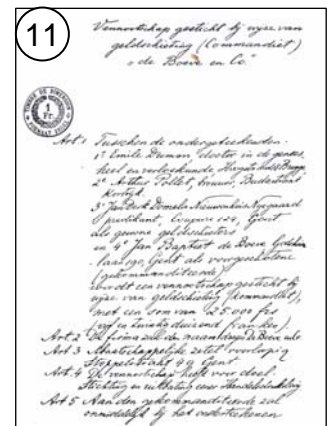 11
Vennootschap gesticht bij wijze van
geldschieting (Commandiet)
"de Boeve en Co."
1
Fr.
Art. 1 Tusschen de ondergeteekenden:
1° Emile Duman doctor in de genees,
heel en verloskunde
2° Arthur Pollet, brouwer,
Kortrijk
3° Jan Derk Domela Nieuwenhuis Nyegaard
predikant, Coupure 124, Gent
als gewone geldschieters
en 4° Jan Baptist de Boeve
laan 190, Gent als
(gekommanditeerde)
wordt een vennootschap gesticht bij
wijze van geldschieting (kommandiet),
met een som van 25.000 frs
(vijf en twintig duizend franken).
Art. 2 De firma zal den naam dragen De Boeve en Co
Art 3 Maatschappelijke zetel voorlopig
49 Gent.
Art. 4 De vennootschap heeft voor doel:
Stichting en uitbating eener Handelsdrukkerij
Art 5 Aan den gekommanditeerde zal
onmiddelijk bij het onderteekenen